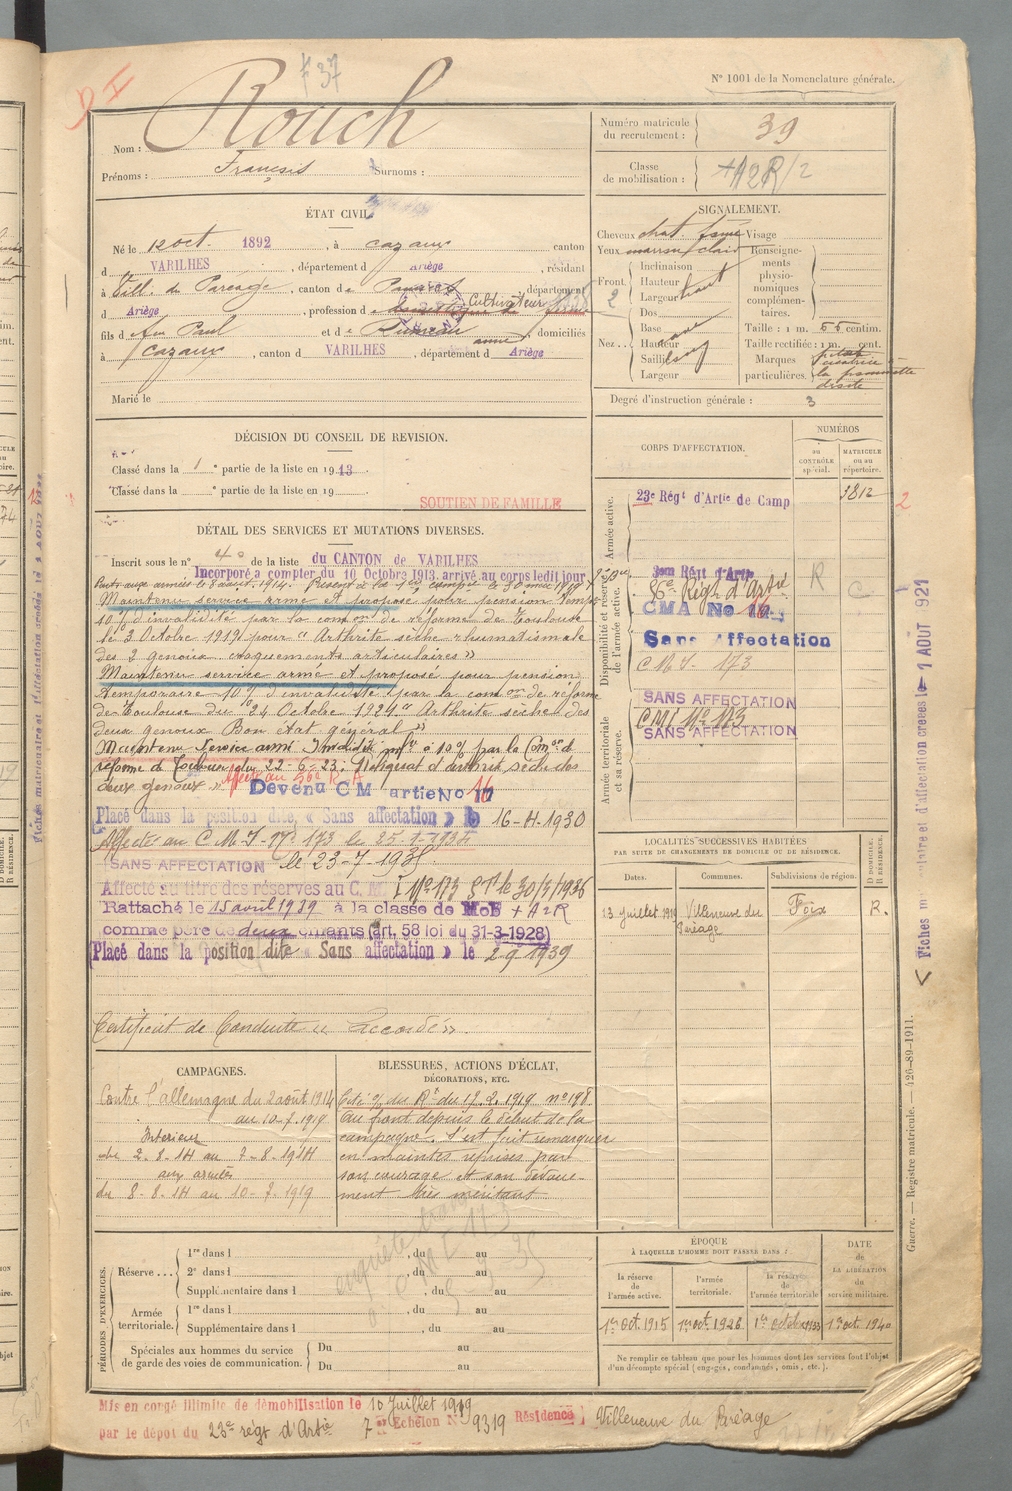 F 37
N° 1001 de la Nomenclature générale.
Nom : Rouch
Prénoms : François Surnoms :
Numéro matricule du recrutement : 39
Classe de mobilisation : +A2R/2
ÉTAT CIVIL.
Né le 12 oct. 1892, à Cazaux canton
d VARILHES, département d Ariège, résidant
à Vill. du Paréage, canton de Pamiers, département
d Ariège, profession de Cultivateur
fils d feu Paul et de anne, domiciliés
à Cazaux, canton d VARILHES, département d Ariège
Marié le
SIGNALEMENT.
Cheveux chat. foncé Visage
Yeux marron clair Renseignements physionomiques complémentaires.
Front. Inclinaison
Hauteur
Largeur haut
Nez.. Dos
Base
Hauteur
Saillie
Largeur
Taille : 1 m. 66 centim.
Taille rectifiée : 1 m. cent.
Marques particulières. petite cicatrice à la pommette droite
Degré d'instruction générale : 3
DÉCISION DU CONSEIL DE REVISION.
Classé dans la 1e partie de la liste en 1913.
Classé dans la e partie de la liste en 19
SOUTIEN DE FAMILLE
CORPS D'AFFECTATION.
NUMÉROS
au CONTRÔLE spécial.
MATRICULE ou au répertoire.
Armée active.
23e Régt d'Artie de Camp 3812
Disponibilité et réserve de l'armée active.
56e Régt d'Artie R
CMA No 16
Sans Affectation
CMI 173
Armée territoriale et sa réserve.
SANS AFFECTATION
CMI No 173
SANS AFFECTATION
DÉTAIL DES SERVICES ET MUTATIONS DIVERSES.
Inscrit sous le n° 4 de la liste du CANTON de VARILHES
Incorporé à compter du 10 Octobre 1913. arrivé au corps ledit jour
Parti aux armées le 8 août 1914.
Maintenu service armé et proposé pour pension temp.
10 % d'invalidité par la comon de réforme de Toulouse
le 3 Octobre 1919 pour "Arthrite sèche rhumatismale
des 2 genoux craquements articulaires"
Maintenu service armé et proposé pour pension
temporaire 10% d'invalidité par la comon de réforme
de Toulouse du 24 Octobre 1921 "Arthrite sèche des
deux genoux Bon état général"
Maintenu Service armé Invalidité infre à 10% par la Comon de
réforme de Toulouse du 22-6-23: Reliquat d'arthrite sèche des
deux genoux". Affecté au 56e R.A.
Devenu CM artie No 16
Placé dans la position dite, « Sans affectation » le 16-4-1930
Affecté au C.M.I. n° 173 le 25-1-1935
SANS AFFECTATION le 23-7-1935
Affecté au titre des réserves au C.M. I No 173 St le 30/3/1936
Rattaché le 15 avril 1939 à la classe de MoB + A2R
comme père de deux enfants (art. 58 loi du 31-3-1928)
Placé dans la position dite « Sans affectation » le 2 9 1939
Certificat de Conduite « Accordé ».
LOCALITÉS SUCCESSIVES HABITÉES
PAR SUITE DE CHANGEMENTS DE DOMICILE OU DE RÉSIDENCE.
D DOMICILE. R RÉSIDENCE.
Dates. Communes. Subdivisions de région.
13 juillet 1919 Villeneuve du Paréage Foix R.
CAMPAGNES.
Contre l'allemagne du 2 août 1914
au 10.7.1919
Intérieur
du 2-8-14 au 7-8-1914
aux armées
du 8-8-14 au 10-7-1919
BLESSURES, ACTIONS D'ÉCLAT,
DÉCORATIONS, ETC.
Cité o/ du Rt du 17.2.1919 n° 198
Au front depuis le début de la
campagne. S'est fait remarquer
en maintes reprises par
son courage et son dévoue-
ment très méritant
PÉRIODES D'EXERCICES.
Réserve... 1re dans l , du au
2e dans l , du au
Supplémentaire dans l , du au
Armée territoriale. 1re dans l , du au
Supplémentaire dans l , du au
Spéciales aux hommes du service de garde des voies de communication. Du au
Du au
ÉPOQUE
À LAQUELLE L'HOMME DOIT PASSER DANS :
la réserve de l'armée active.
l'armée territoriale.
la réserve de l'armée territoriale
DATE de LA LIBÉRATION du service militaire.
1er oct. 1915 1er oct. 1926 1er octobre 1933 1er oct. 1940
Ne remplir ce tableau que pour les hommes dont les services font l'objet d'un décompte spécial (engagés, condamnés, omis, etc.).
Mis en congé illimité de démobilisation le 10 Juillet 1919
par le dépôt du 23e régt d'Artie 7e Echelon N° 9319 Résidence Villeneuve du Paréage
Guerre. — Registre matricule. — 426-89-1911.